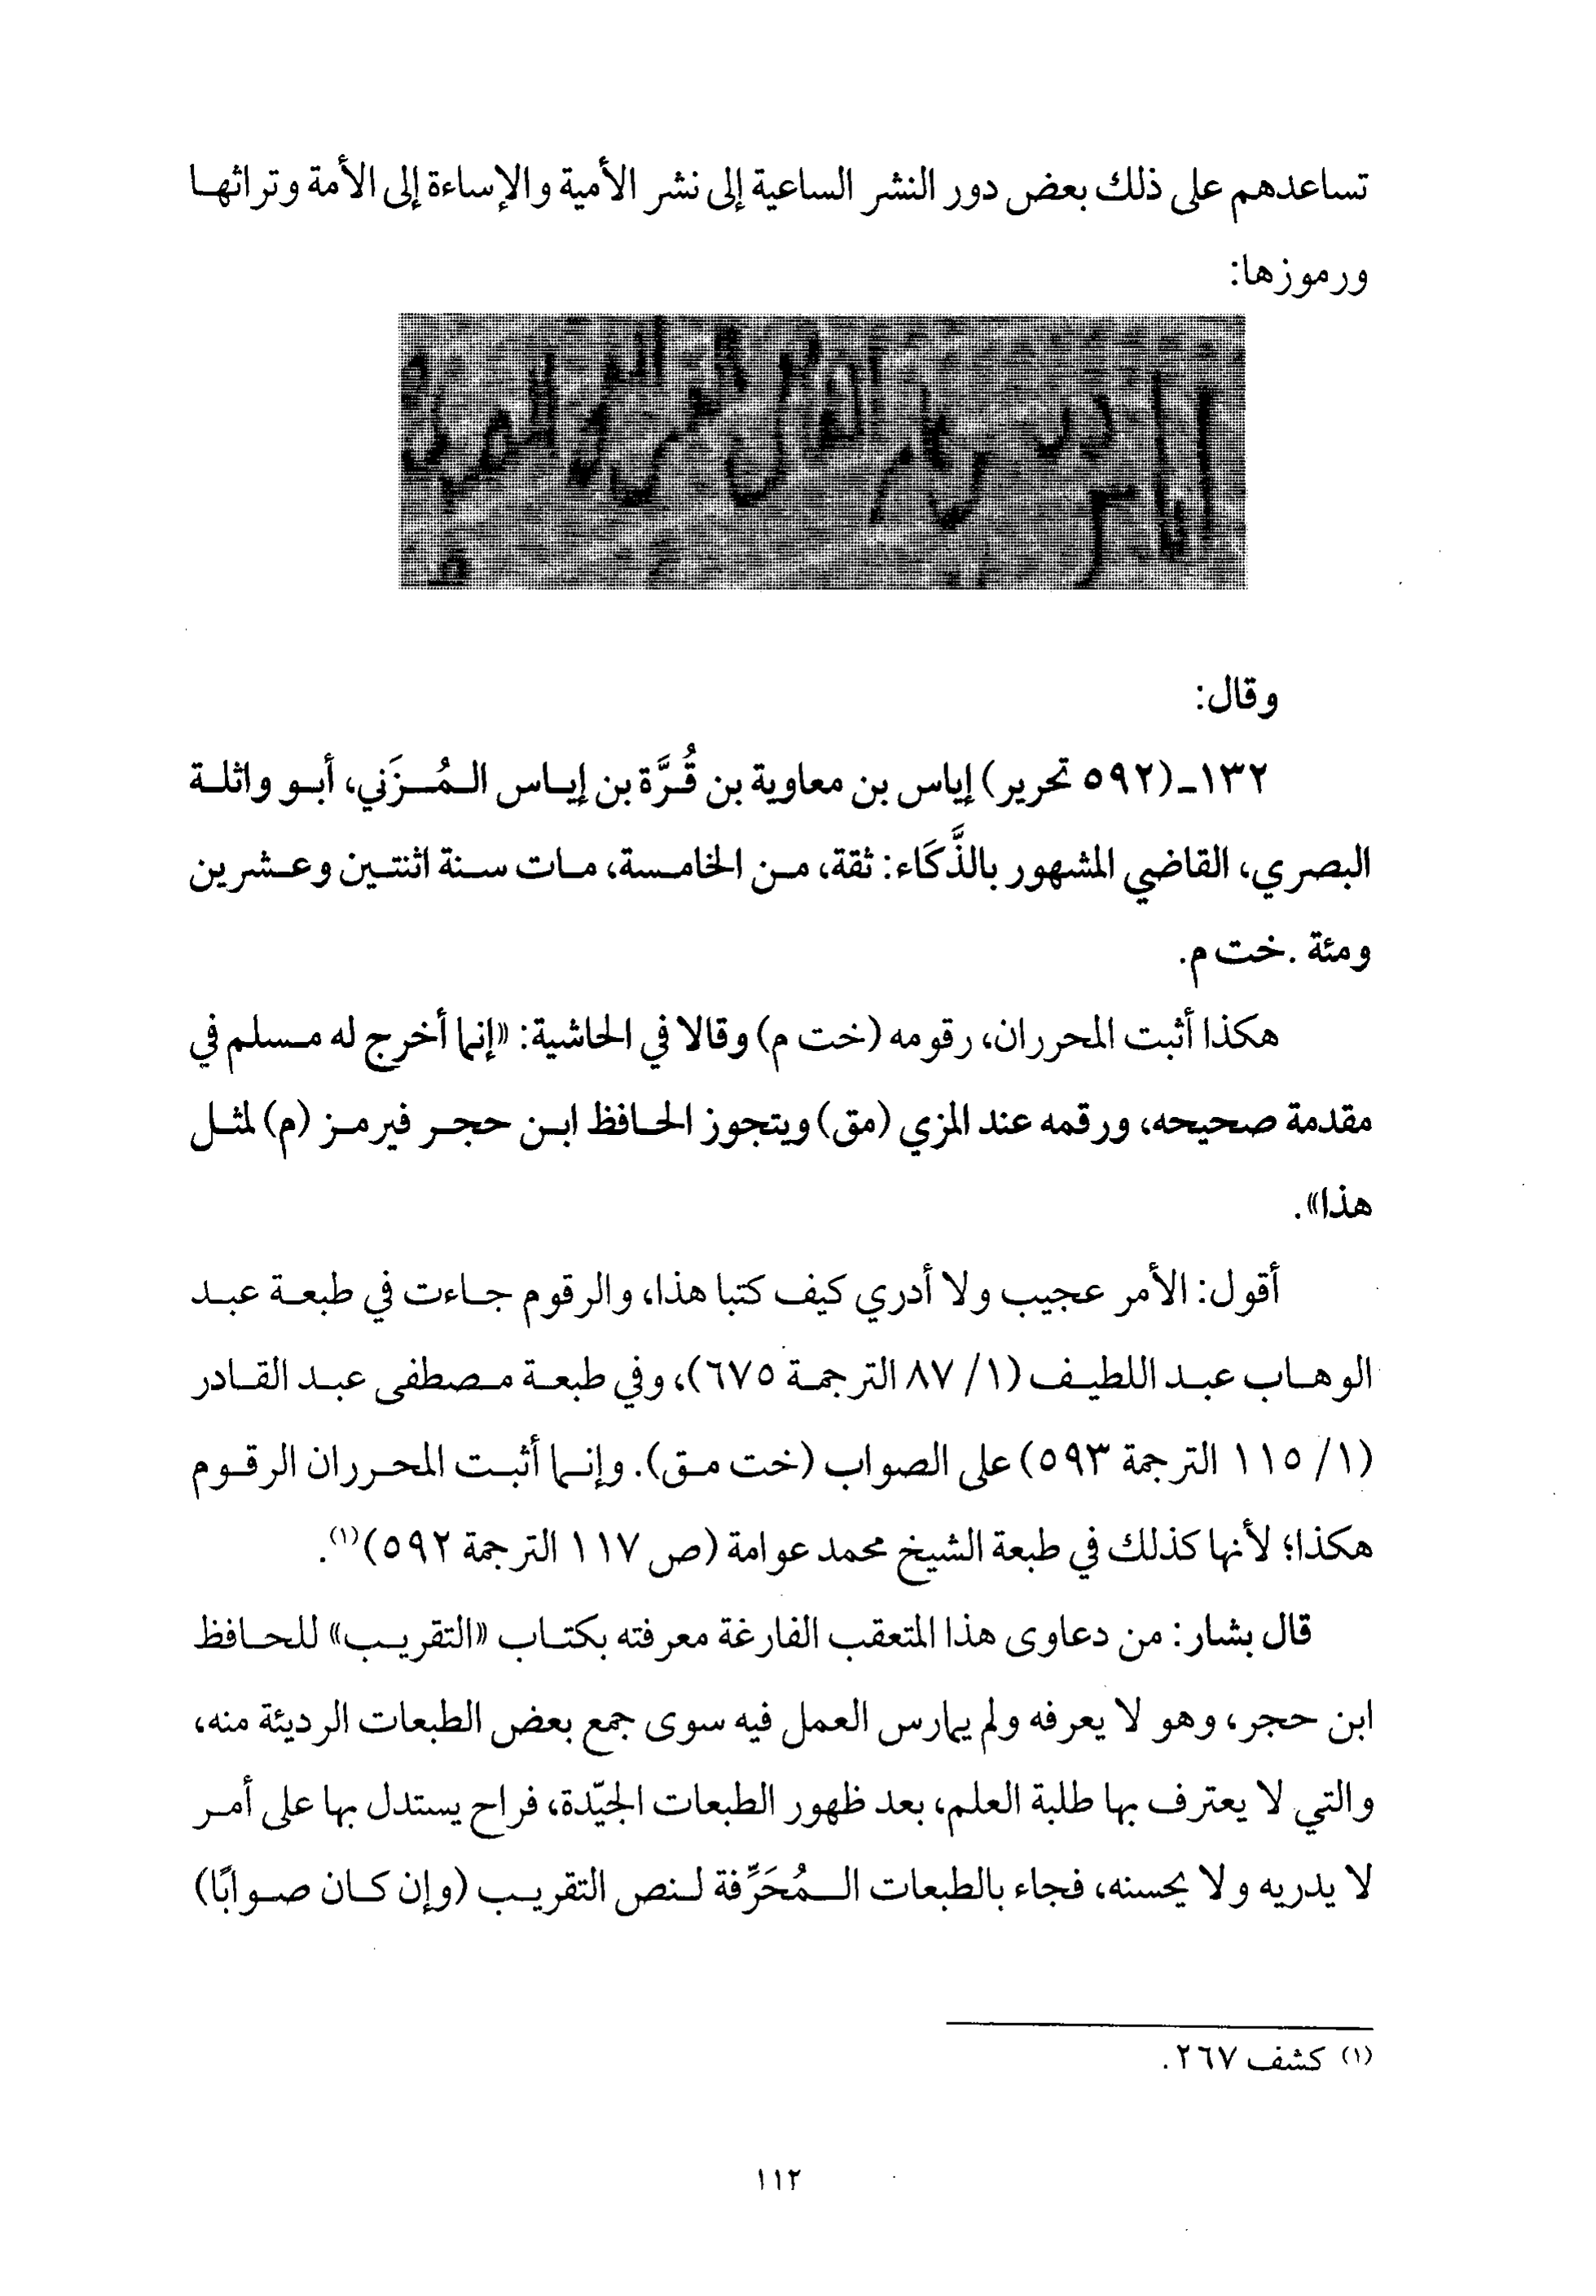 تساعدهم على ذلك بعض دور النشر الساعية إلى نشر الأمية والإساءة إلى الأمة وتراثها
ورموزها:
وقال:
١٣٢ـ(٥٩٢ تحرير) إياس بن معاوية بن قُرَّة بن إياس المُزَني، أبو واثلة
البصري، القاضي المشهور بالذَّكَاء: ثقة، من الخامسة، مات سنة اثنتين وعشرين
ومئة .خت م.
هكذا أثبت المحرران، رقومه (خت م) وقالا في الحاشية: «إنما أخرج له مسلم في
مقدمة صحيحه، ورقمه عند المزي (مق) ويتجوز الحافظ ابن حجر فيرمز (م) لمثل
هذا».
أقول: الأمر عجيب ولا أدري كيف كتبا هذا، والرقوم جاءت في طبعة عبد
الوهاب عبد اللطيف (١/ ٨٧ الترجمة ٦٧٥)، وفي طبعة مصطفى عبد القادر
(١/ ١١٥ الترجمة ٥٩٣) على الصواب (خت مق). وإنما أثبت المحرران الرقوم
هكذا؛ لأنها كذلك في طبعة الشيخ محمد عوامة (ص ١١٧ الترجمة ٥٩٢)(١).
قال بشار: من دعاوى هذا المتعقب الفارغة معرفته بكتاب «التقريب» للحافظ
ابن حجر، وهو لا يعرفه ولم يمارس العمل فيه سوى جمع بعض الطبعات الرديئة منه،
والتي لا يعترف بها طلبة العلم، بعد ظهور الطبعات الجيّدة، فراح يستدل بها على أمر
لا يدريه ولا يحسنه، فجاء بالطبعات المُحَرِّفة لنص التقريب (وإن كان صوابًا)
(١) كشف ٢٦٧.
١١٢